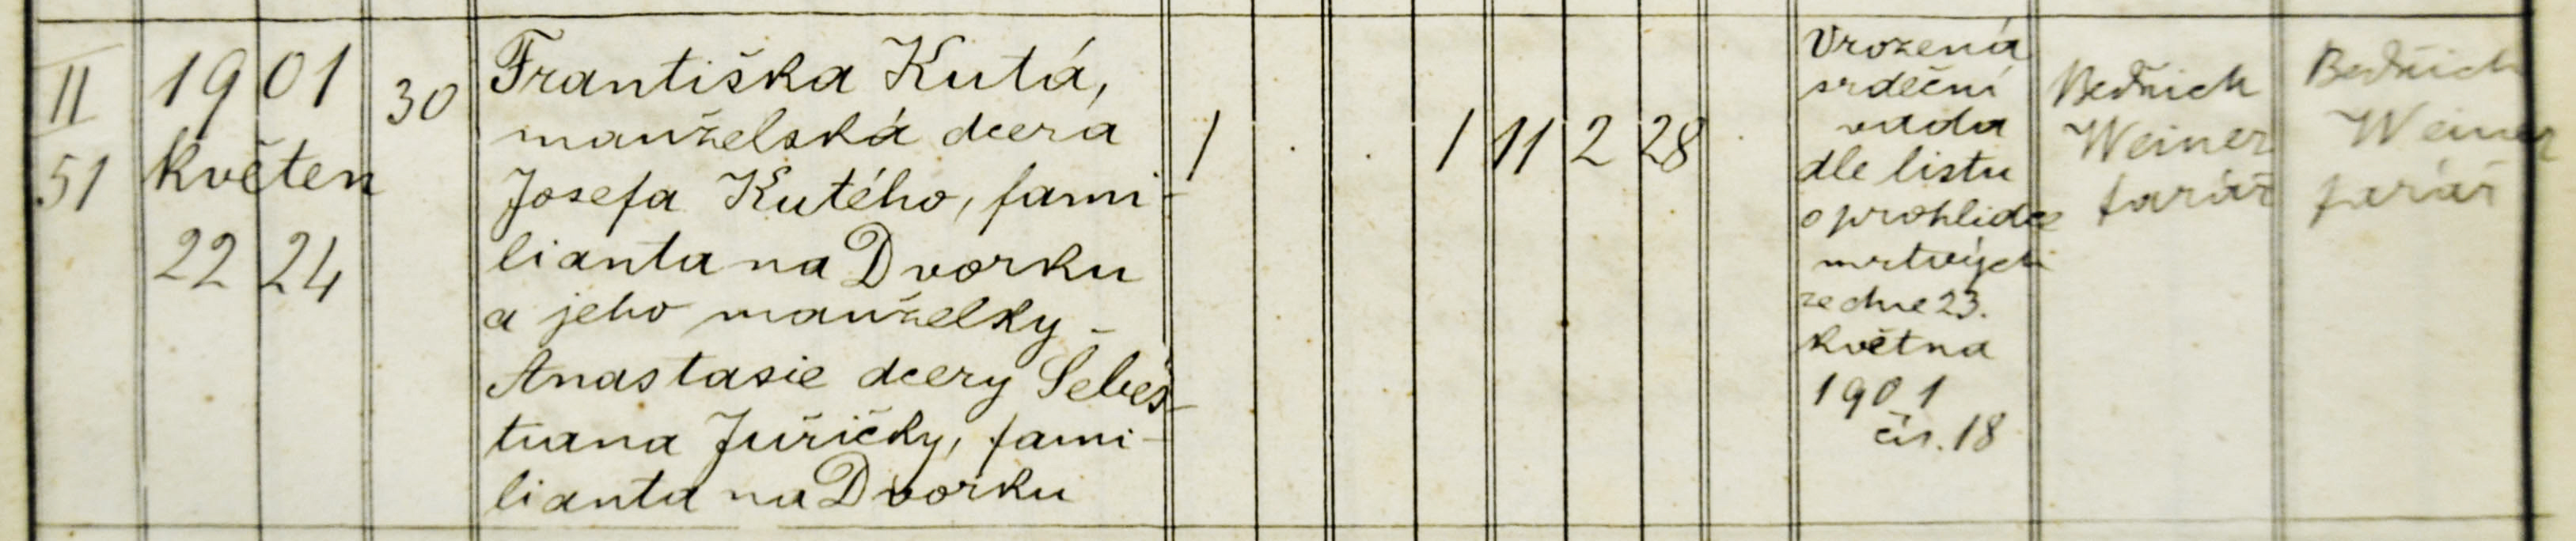 II
51
1901
květen
22 24
30
Františka Kutá,
manželská dcera
Josefa Kutého, fami-
lianta na Dvorku
a jeho manželky -
Anastasie dcery Šebes-
tiana Juřičky, fami-
lianta na Dvorku
1 . . 1 11 2 28 .
Vrozená
srdeční
vada
dle listu
o prohlídce
mrtvých
ze dne 23.
května
1901
čís. 18
Bedřich
Weiner
farář
Bedřich
Weiner
farář